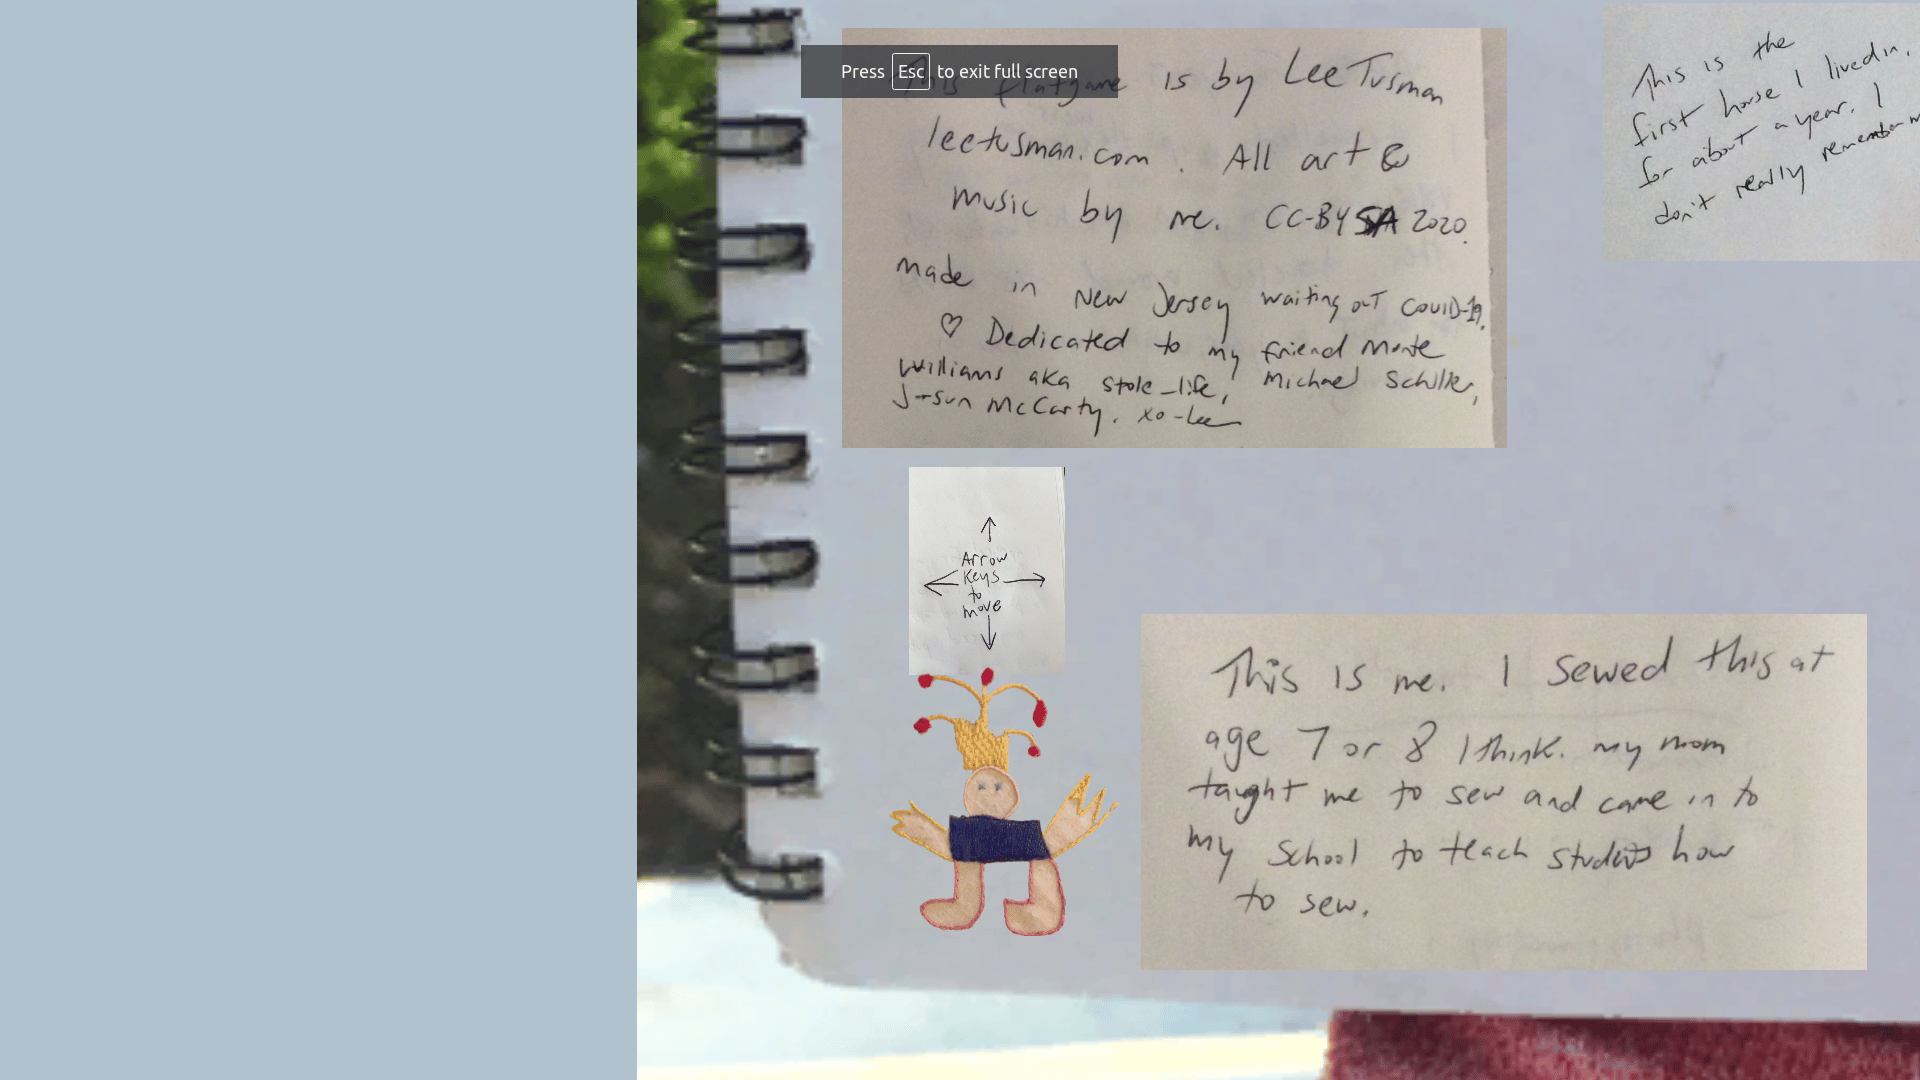 Press Esc to exit full screen
This flatgame is by Lee Tusman
leetusman.com. All art &
music by me. CC-BY SA 2020.
made in New Jersey waiting out COVID-19.
♡ Dedicated to my friend Monte
Williams aka stole_life, Michael Schiller,
J-sun McCarty. xo-Lee
This is the
first house I lived in,
for about a year. I
don't really remember
↑
Arrow
← Keys →
to
move
↓
This is me. I sewed this at
age 7 or 8 I think. my mom
taught me to sew and came in to
my School to teach students how
to sew.